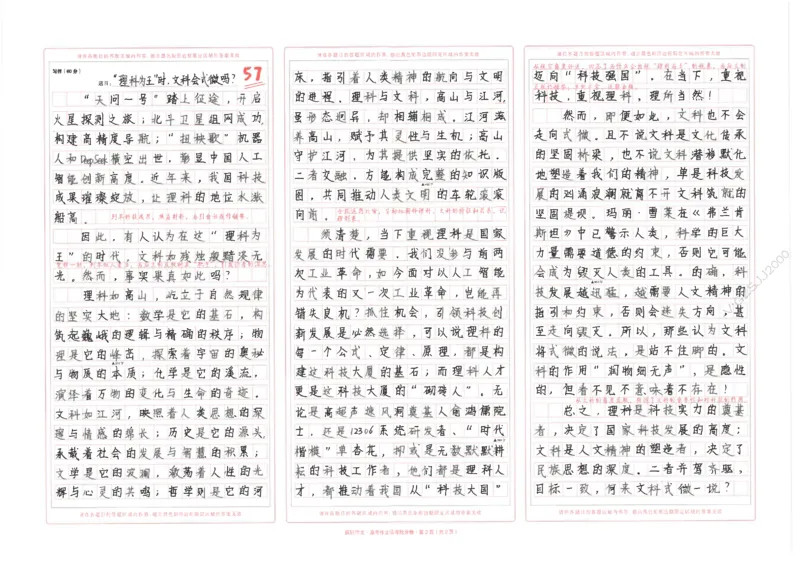 写作（60分）
题目："理科为王"时，文科会式微吗？
57
"天问一号"踏上征途，开启
火星探测之旅；北斗卫星组网成功，
构建高精度导航；"扭秧歌"机器
人和DeepSeek横空出世，彰显中国人工
智能创新高度。近年来，我国科技
成果璀璨绽放，让理科的地位水涨
船高。
因此，有人认为在这"理科为
王"的时代，文科如残烛般黯淡无
光。然而，事实果真如此吗？
理科如高山，屹立于自然规律
的坚实大地：数学是它的基石，构
筑起巍峨的逻辑与精确的秩序；物
理是它的峰峦，探索着宇宙的奥秘
与物质的本质；化学是它的溪流，
演绎着万物的变化与生命的奇迹。
文科如江河，映照着人类思想的深
邃与情感的绵长；历史是它的源头，
承载着社会的发展与智慧的积累；
文学是它的波澜，激荡着人性的光
辉与心灵的共鸣；哲学则是它的河
床，指引着人类精神的航向与文明
的进程。理科与文科，高山与江河，
虽形态迥异，却相辅相成。江河滋
养高山，赋予其灵性与生机；高山
守护江河，为其提供坚实的依托。
二者交融，方能构成完整的知识版
图，共同推动人类文明的车轮滚滚
向前。
须清楚，当下重视理科是国家
发展的时代需要。我们没参与前两
次工业革命，如今面对以人工智能
为代表的又一次工业革命，岂能再
错失良机？抓住机会，引领科技创
新发展是必然选择，可以说理科的
每一个公式、定律、原理，都是构
建这科技大厦的基石；而理科人才
更是这科技大厦的"砌砖人"。无
论是高超声速风洞奠基人俞鸿儒院
士，还是12306系统研发者、"时代
楷模"单杏花，抑或是无数默默耕
耘的科技工作者，他们都是理科人
才，都推动着我国从"科技大国"
迈向"科技强国"。在当下，重视
科技，重视理科，理所当然！
然而，即便如此，文科也不会
走向式微。且不说文科是文化传承
的坚固桥梁，也不说文科潜移默化
地塑造着我们的精神，单是科技发
展的汹涌浪潮就离不开文科筑就的
坚固堤坝。玛丽·雪莱在《弗兰肯
斯坦》中已警示人类，科学的巨大
力量需要道德的约束，否则它可能
会成为毁灭人类的工具。的确，科
技发展越迅猛，越需要人文精神的
指引和约束，否则会迷失方向，甚
至走向毁灭。所以，那些认为文科
将式微的说法，是站不住脚的。文
科的作用"润物细无声"，是隐性
的，但看不见不意味着不存在！
总之，理科是科技实力的奠基
者，决定了国家科技发展的高度；
文科是人文精神的塑造者，决定了
民族思想的深度。二者并驾齐驱，
目标一致，何来文科式微一说？